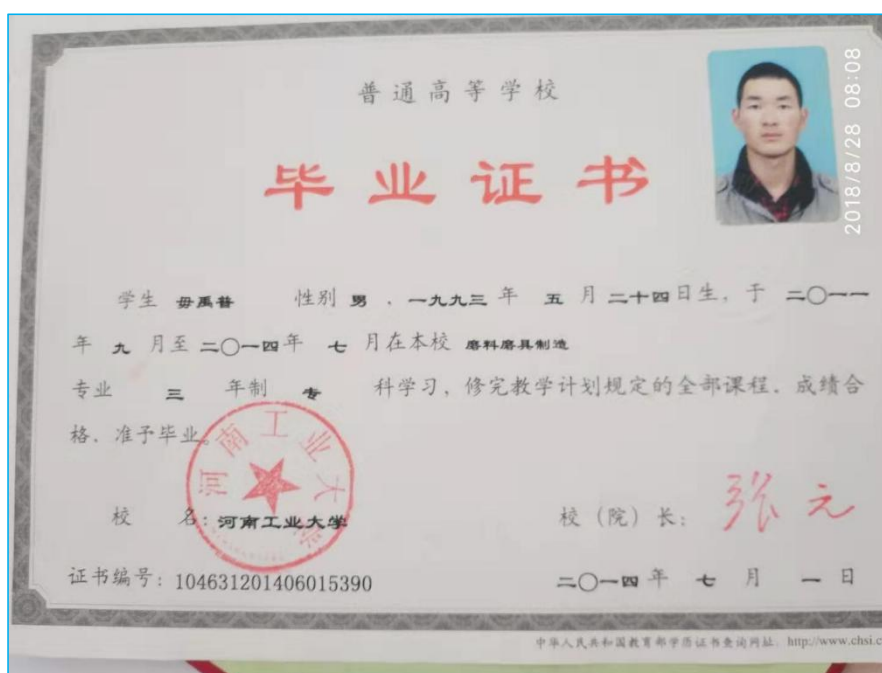 普通高等学校
毕业证书
2018/8/28 08:08
学生 毋禹普 性别 男 ,一九九三 年 五 月 二十四日生，于 二〇一一
年 九 月至 二〇一四年 七 月在本校 磨料磨具制造
专业 三 年制 专 科学习，修完教学计划规定的全部课程，成绩合
格，准予毕业。
河南工业大学
校 名：河南工业大学 校（院）长：张元
证书编号：104631201406015390 二〇一四年 七 月 一 日
中华人民共和国教育部学历证书查询网址：http://www.chsi.c